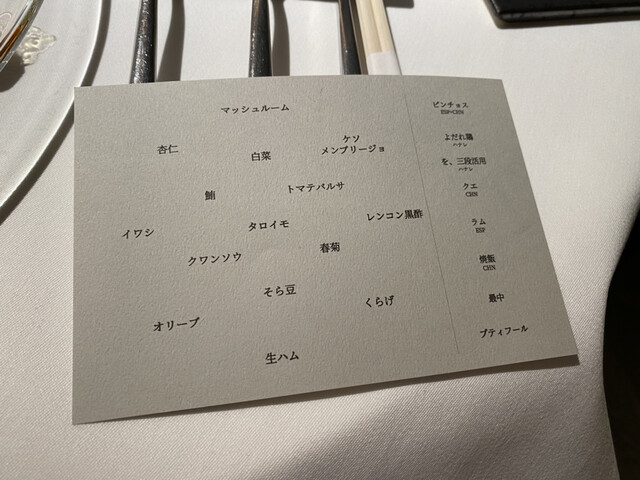 マッシュルーム
杏仁
白菜
ケソ
メンブリージョ
鮪
トマテバルサ
イワシ
タロイモ
レンコン黒酢
クワンソウ
春菊
そら豆
くらげ
オリーブ
生ハム
ピンチョス
ESP×CHN
よだれ鶏
ハナレ
を、三段活用
ハナレ
クエ
CHN
ラム
ESP
焼飯
CHN
最中
プティフール